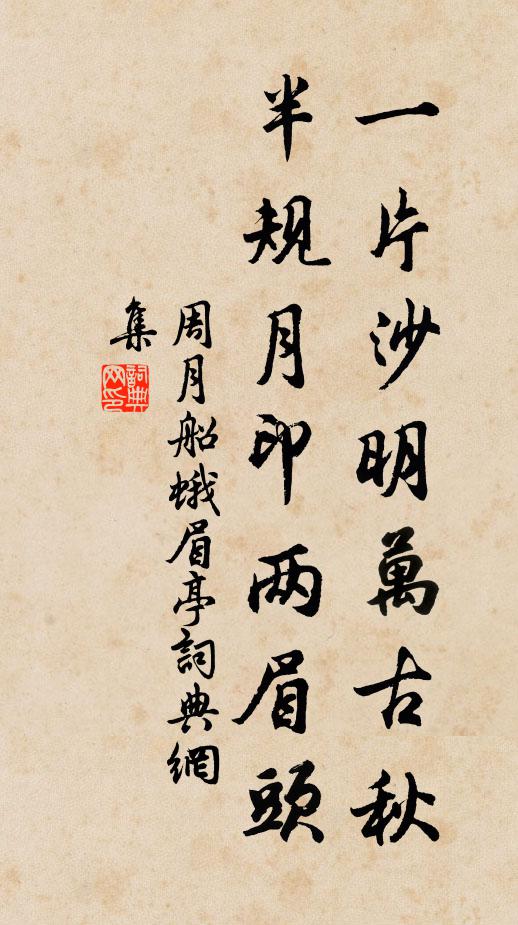 一片沙明萬古秋
半規月印两眉頭
周月船蛾眉亭詞典網
集
詞典
网印